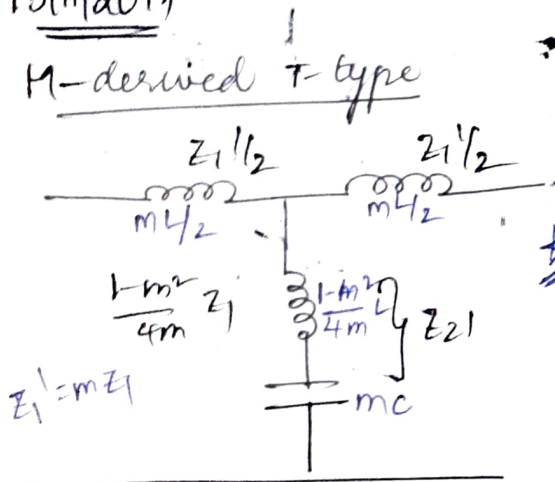 M-derived T-type
Z₁'/2 Z₁'/2
mL/2 mL/2
1-m²/4m Z₁ 1-m²/4m L Z₂1
Z₁'=mZ₁
mc